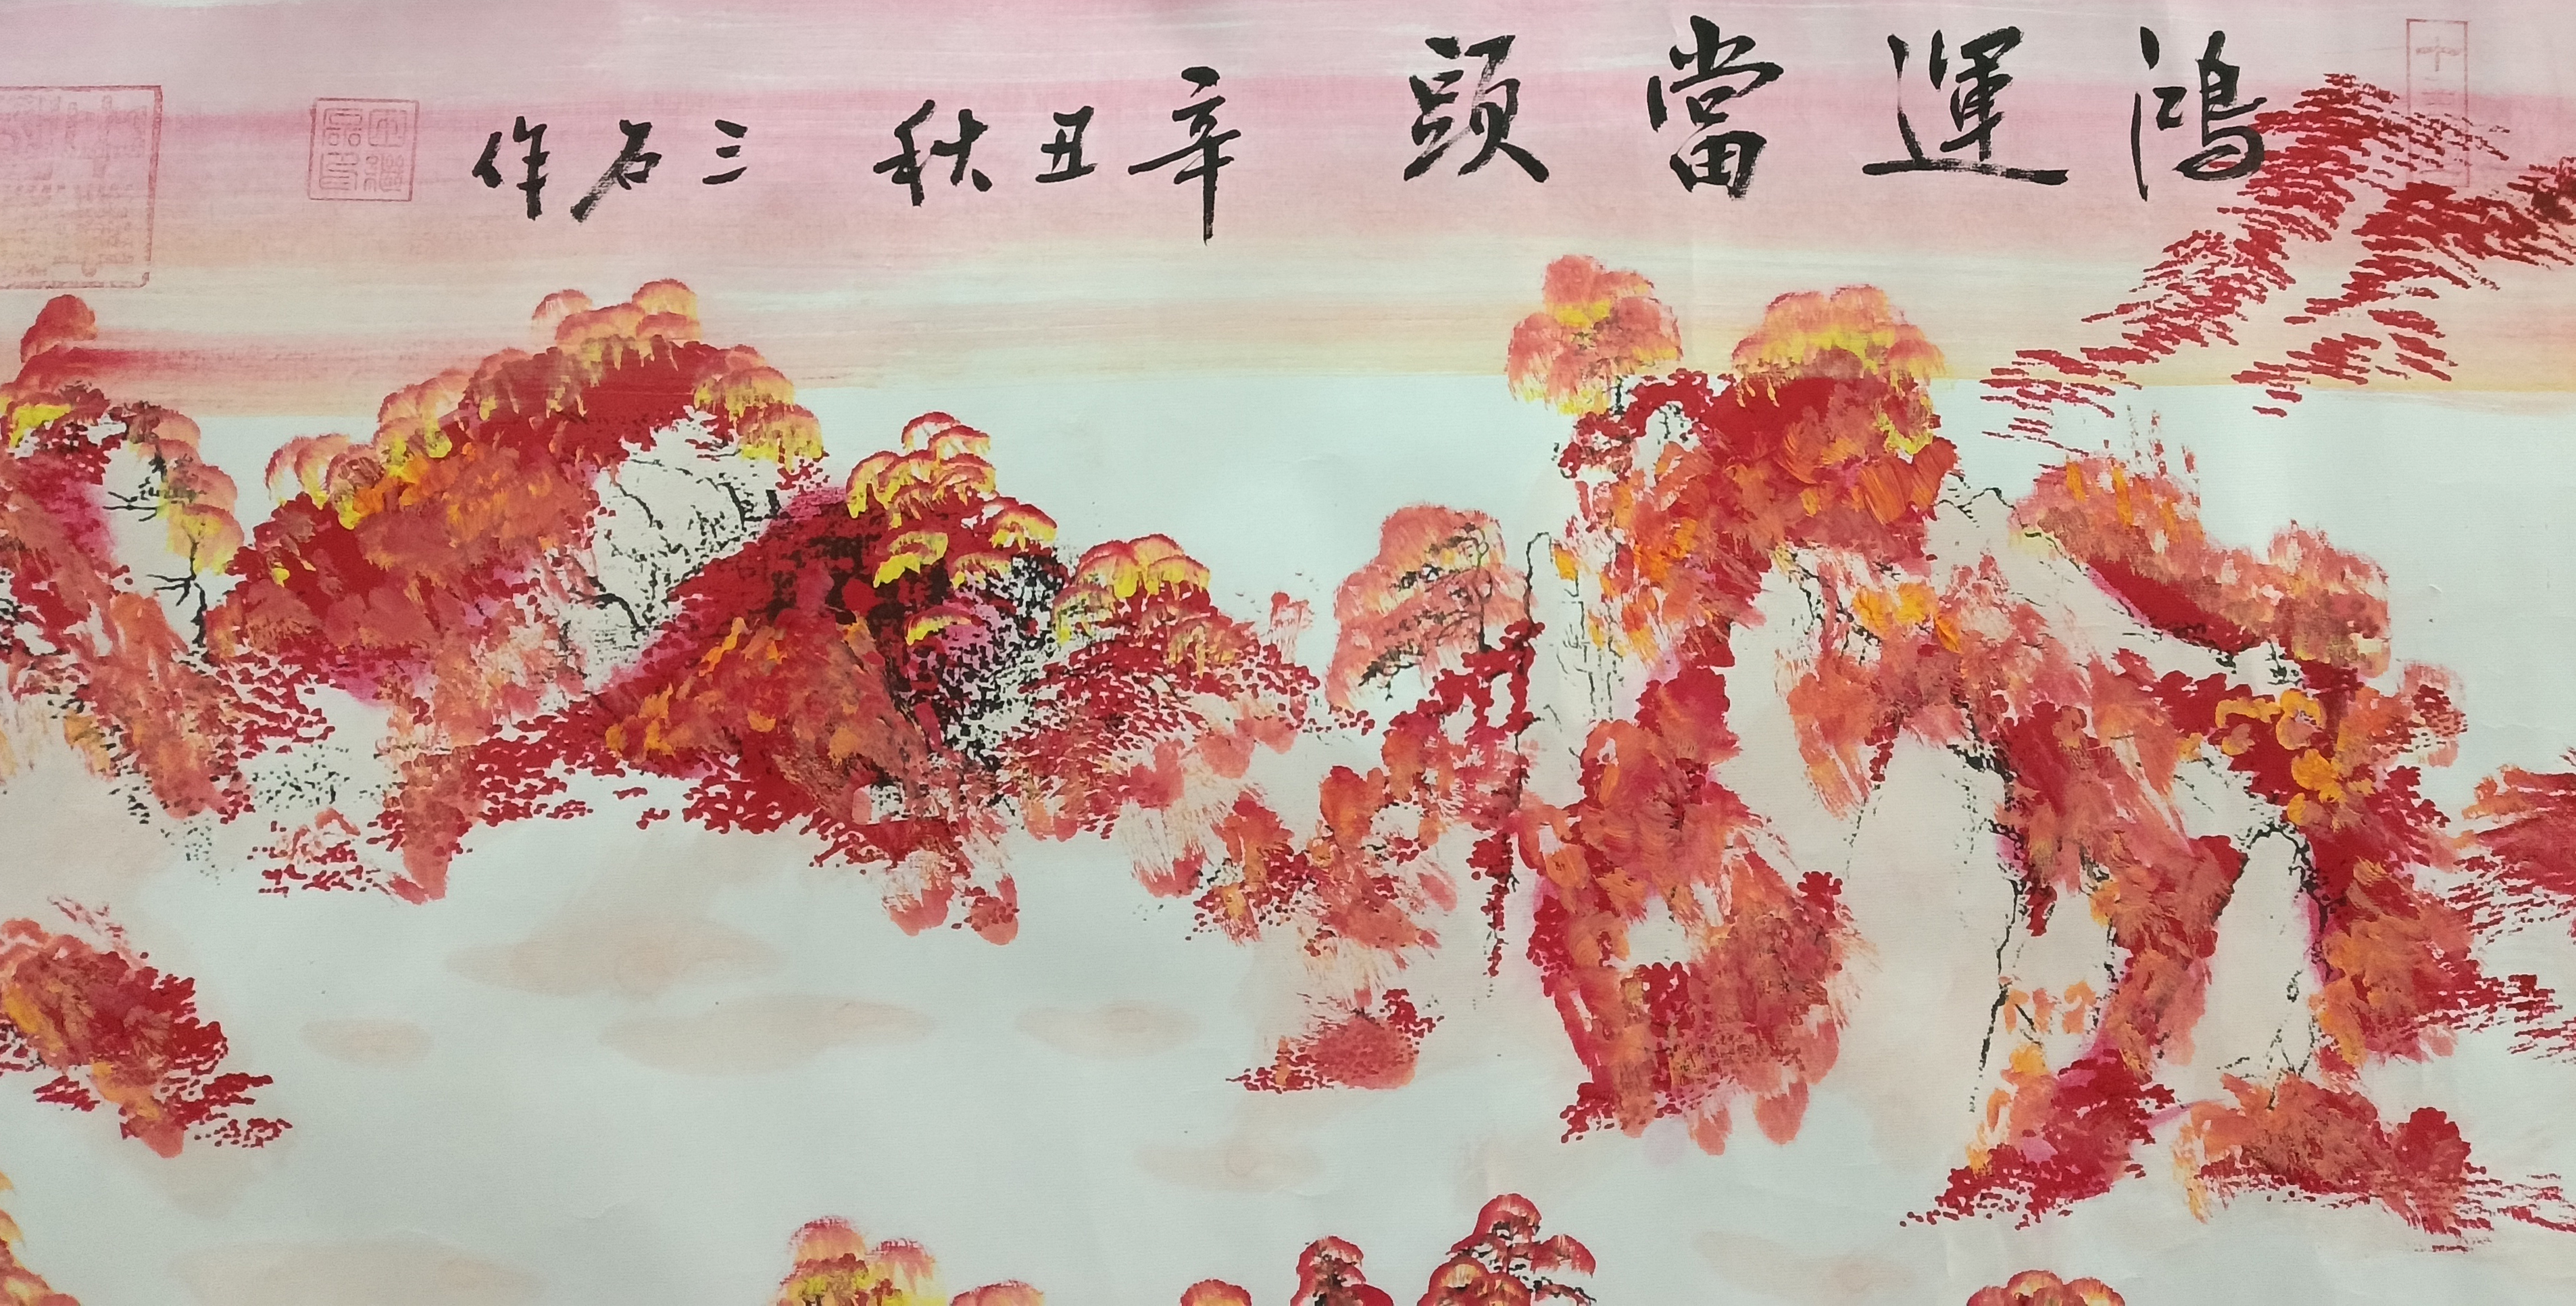 鴻運當頭 辛丑秋 三石作